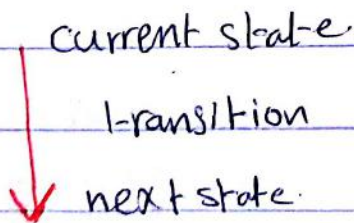 current state.
transition
next state.